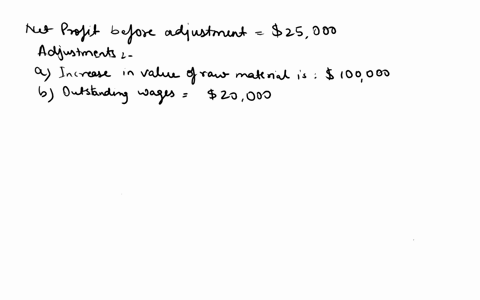 Net Profit before adjustment = $25,000
Adjustments :-
a) Increase in value of raw material is : $100,000
b) Outstanding wages = $20,000